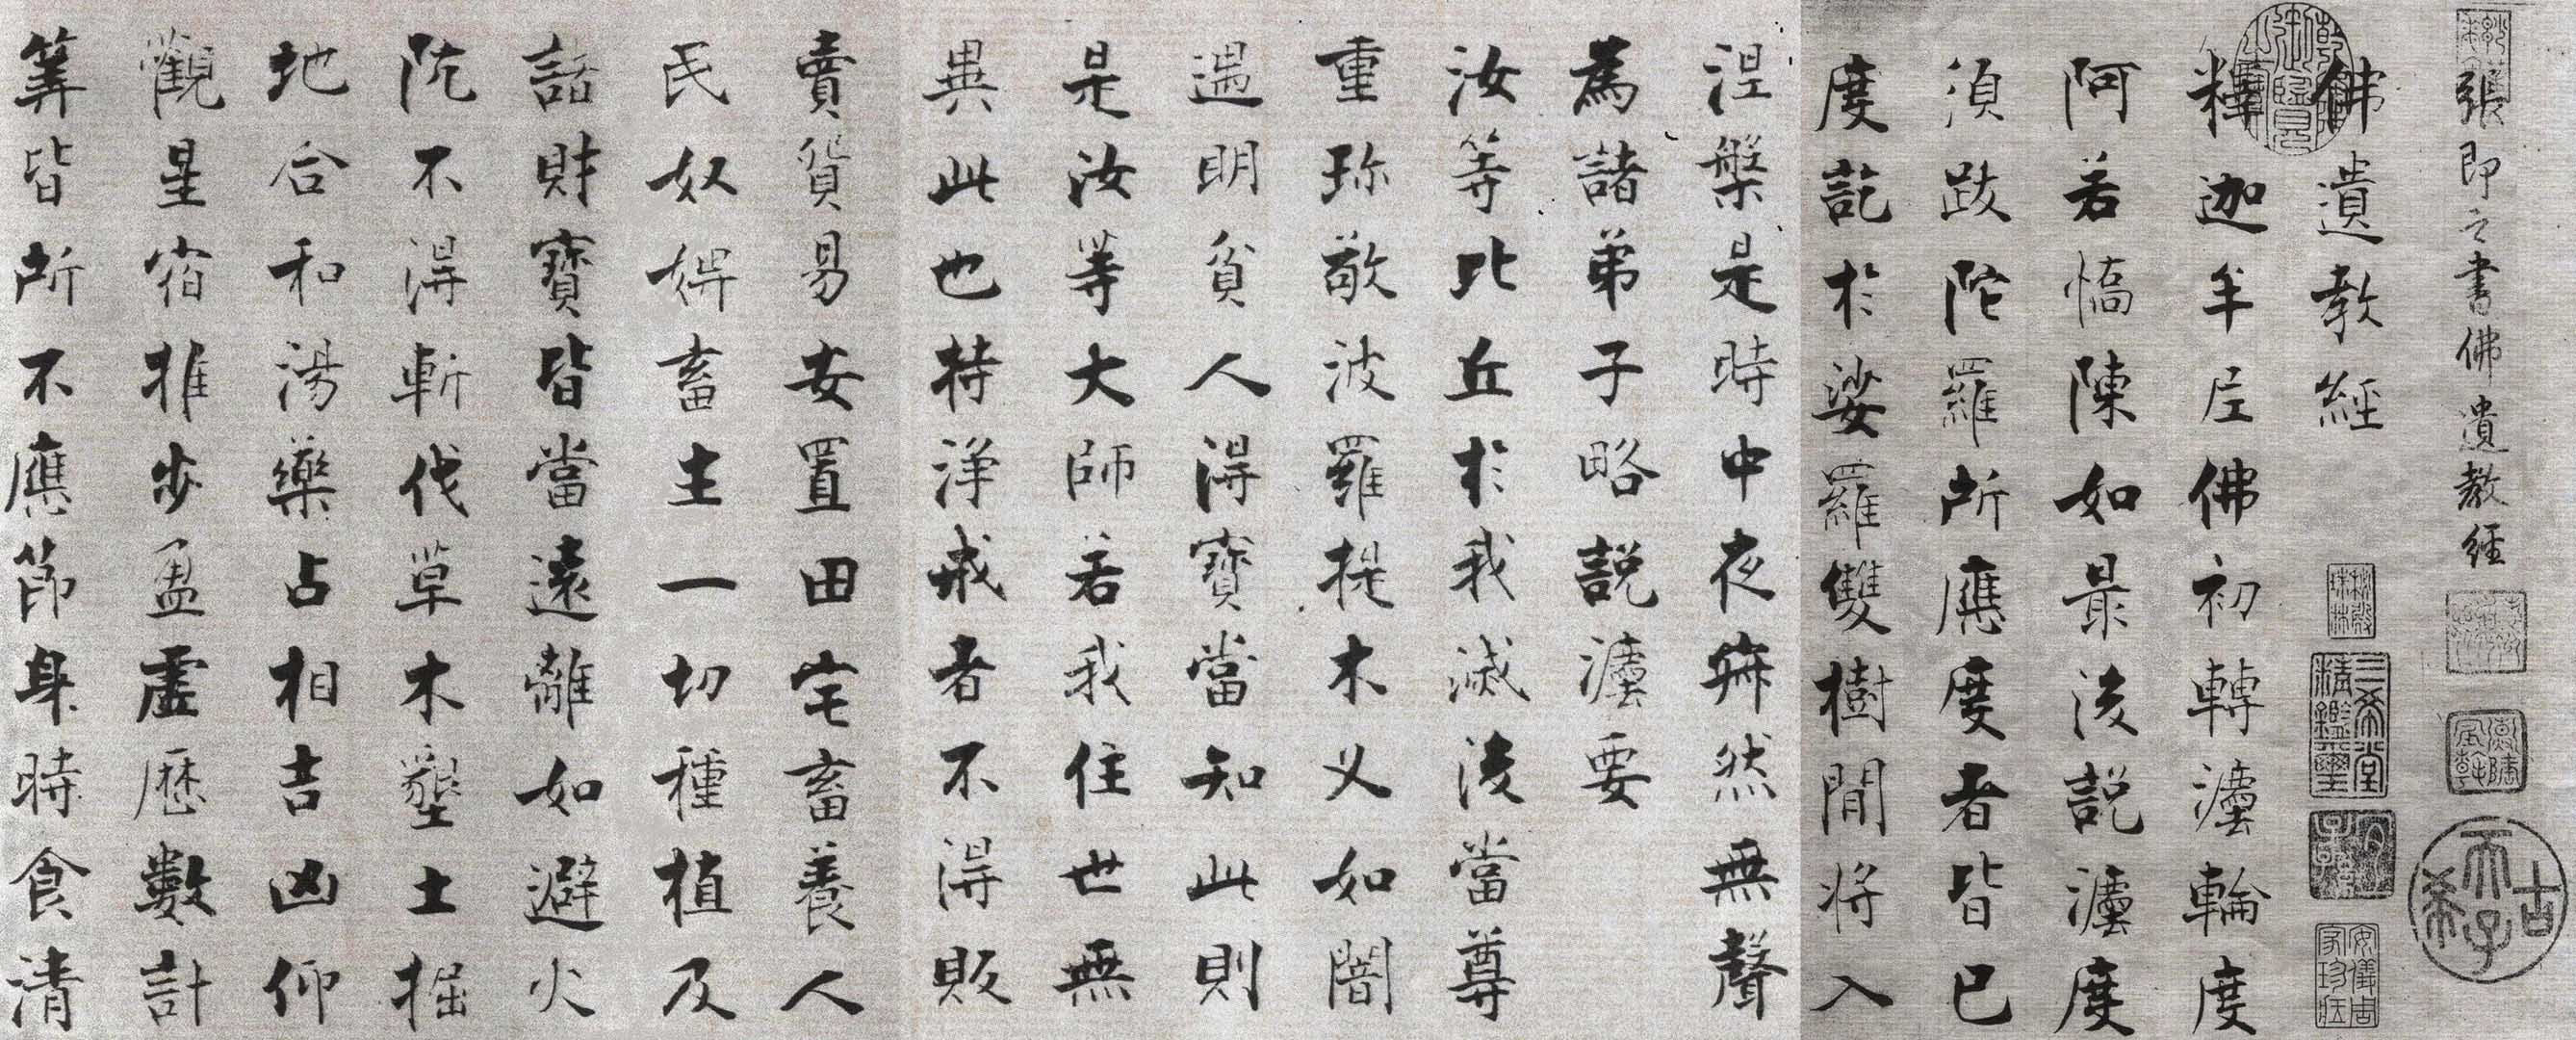 張即之書佛遺教經
佛遺教經
釋迦牟尼佛初轉灋輪度
阿若憍陳如最後説灋度
須跋陀羅所應度者皆已
度訖於娑羅雙樹間将入
涅槃是時中夜寂然無聲
為諸弟子略説灋要
汝等比丘於我滅後當尊
重珎敬波羅提木义如闇
遇明貧人得寶當知此則
是汝等大師若我住世無
異此也持淨戒者不得販
賣貿易安置田宅畜養人
民奴婢畜生一切種植及
諸財寶皆當遠離如避火
阬不得斬伐草木墾土掘
地合和湯藥占相吉凶仰
觀星宿推步盈虛歷數計
筭皆所不應節身時食清
三希堂精鑑璽
宜子孫
古希天子
安儀周家珍藏
乾隆御覽之寶